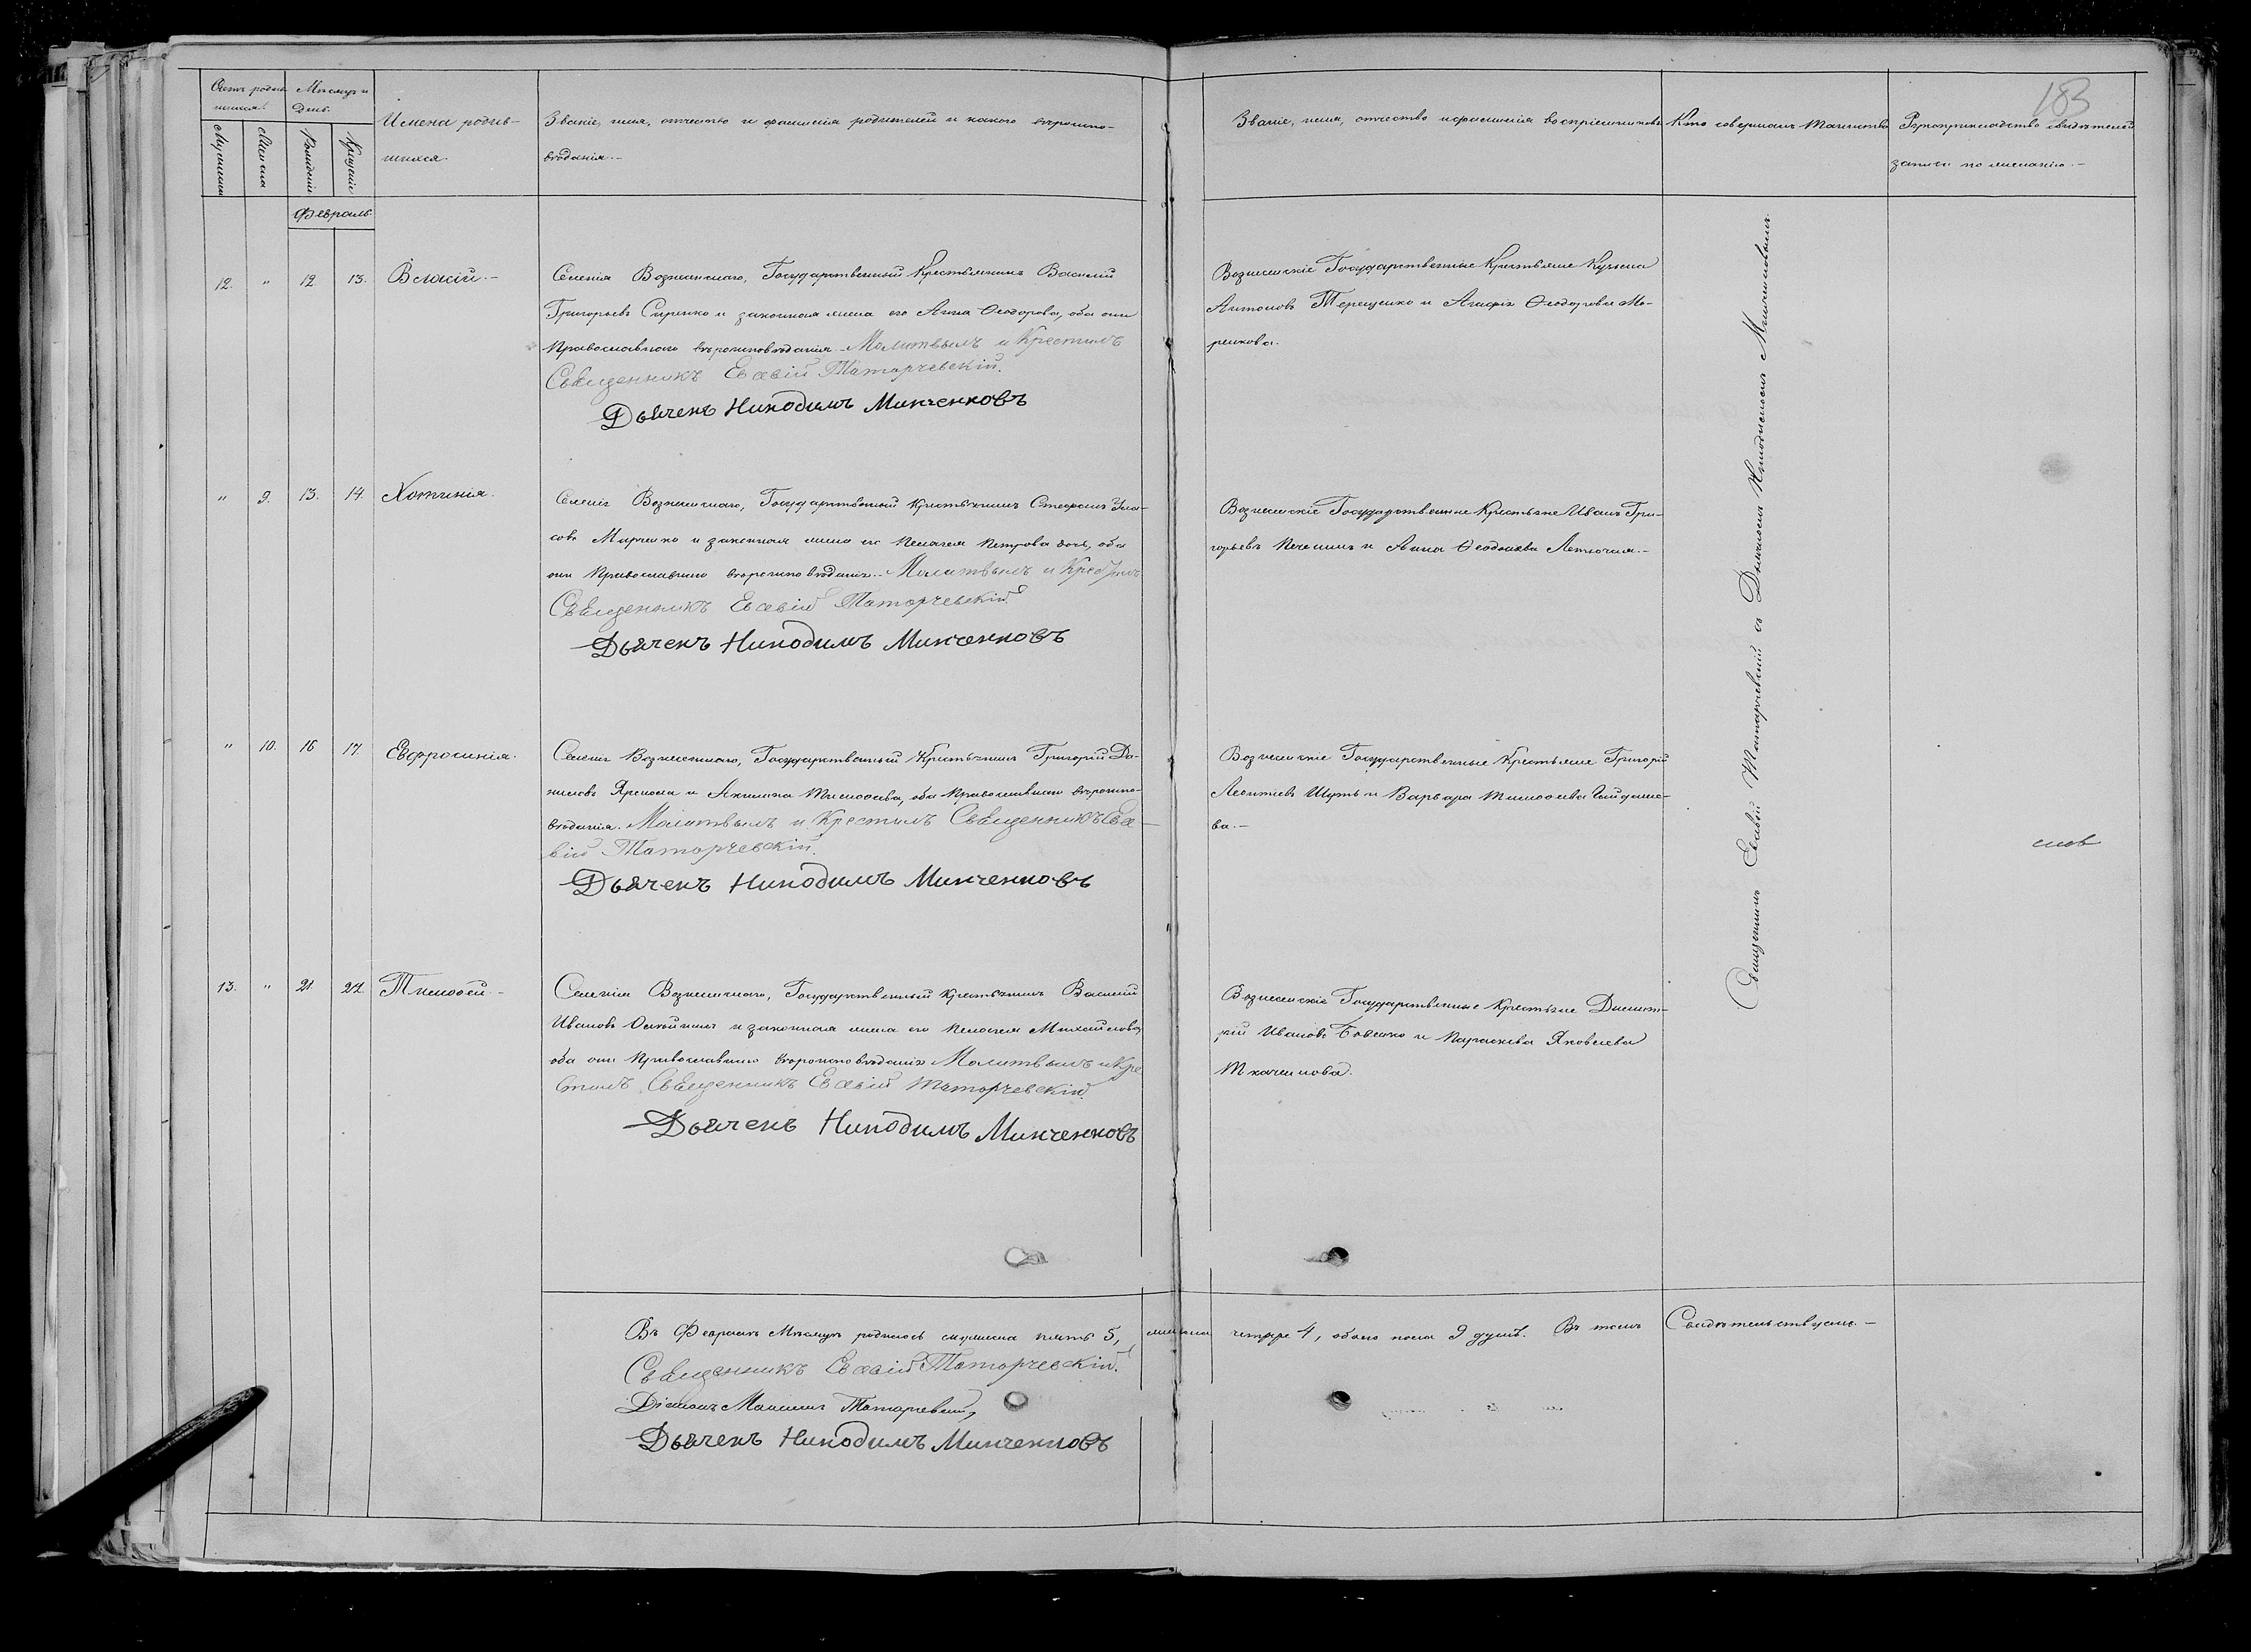 183
Счетъ родив-
шихся.
Мѣсяцъ и
День.
Мужеска
Женска
Рожденія
Крещенія
Имена родив-
шихся.
Званіе, имя, отчество и фамилія родителей и какого вѣроиспо-
вѣданія.-
Званіе, имя, отчество и фамилія воспріемниковъ
Кто совершалъ таинство
Рукоприкладство свидѣтелей
записи по желанію.-
Февраль
12. " 12 13. Власій.-
Селенія Вознесенскаго, Государственный Крестьянинъ Василій
Григорьевъ Сиренко и законная жена его Анна Ѳеодорова, оба они
Православнаго вѣроисповѣданія. Молитвилъ и Крестилъ
Священникъ Евсевій Таторчевскій.
Дьячекъ Никодимъ Минченковъ
Вознесенскіе Государственные Крестьяне Кузьма
Антоновъ Терещенко и Агафія Ѳеодорова Мо-
ренкова.
" 9. 13. 14. Хотинія.
Селенія Вознесенскаго, Государственный Крестьянинъ Стефанъ Ула-
совъ Марченко и законная жена его Пелагея Петрова дочь, оба
они Православнаго вѣроисповѣданія.- Молитвилъ и Крестилъ
Священникъ Евсевій Таторчевскій
Дьячекъ Никодимъ Минченковъ
Вознесенскіе Государственные Крестьяне Иванъ Гри-
горьевъ и Анна Ѳеодосіева.-
" 10. 16 17. Евфросинія.
Селенія Вознесенскаго, Государственный Крестьянинъ Григорій Да-
ниловъ и Акилина Тимофеева, оба Православнаго вѣроиспо-
вѣданія. Молитвилъ и Крестилъ Священникъ Евсе-
вій Таторчевскій.
Дьячекъ Никодимъ Минченковъ
Вознесенскіе Государственные Крестьяне Григорій
Леонтіевъ Шуть и Варвара Тимофеева Гайдамо-
ва.-
13. " 21. 22. Тимофей.-
Селенія Вознесенскаго, Государственный Крестьянинъ Василій
Ивановъ и законная жена его Пелагея Михайлова,
оба они Православнаго вѣроисповѣданія Молитвилъ и Кре
стилъ Священникъ Евсевій Таторчевскій.
Дьячекъ Никодимъ Минченковъ
Вознесенскіе Государственные Крестьяне Димит-
рій Ивановъ и Параскева Яковлева
Ткаченкова.
Священникъ Евсевій Таторчевскій съ Дьячкомъ Никодимомъ Минченковымъ.
Въ Февралѣ Мѣсяцѣ родилось мужеска пять 5, женска четыре 4, обоего пола 9 душъ. Въ томъ Свидѣтельствуемъ.-
Священникъ Евсевій Таторчевскій.
Діаконъ Таторчевскій
Дьячекъ Никодимъ Минченковъ